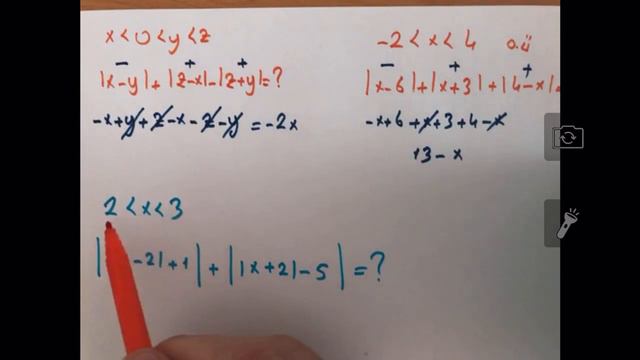 x < 0 < y < z
− + +
|x-y| + |z-x| - |z+y| = ?
-x+y+z-x-z-y = -2x
-2 < x < 4 o.ü
− + +
|x-6| + |x+3| + |4-x| =
-x+6+x+3+4-x
13-x
2 < x < 3
| -2|+1| + ||x+2|-5| = ?